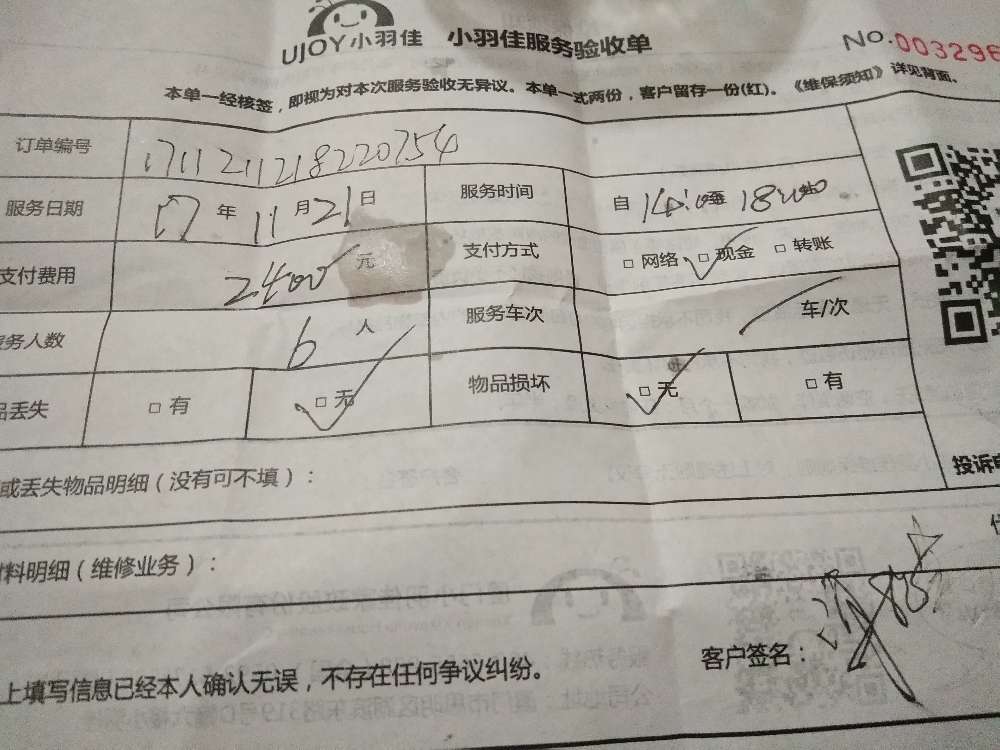 UJOY小羽佳 小羽佳服务验收单
No.003296
本单一经核签，即视为对本次服务验收无异议。本单一式两份，客户留存一份(红)。《维保须知》详见背面。
订单编号 1711211218220754
服务日期 17年11月21日 服务时间 自14:00至18:00
支付费用 2400元 支付方式 □网络 □现金 □转账
务人数 6人 服务车次 车/次
品丢失 □有 □无 物品损坏 □无 □有
或丢失物品明细（没有可不填）：
投诉
料明细（维修业务）：
客户签名：
上填写信息已经本人确认无误，不存在任何争议纠纷。